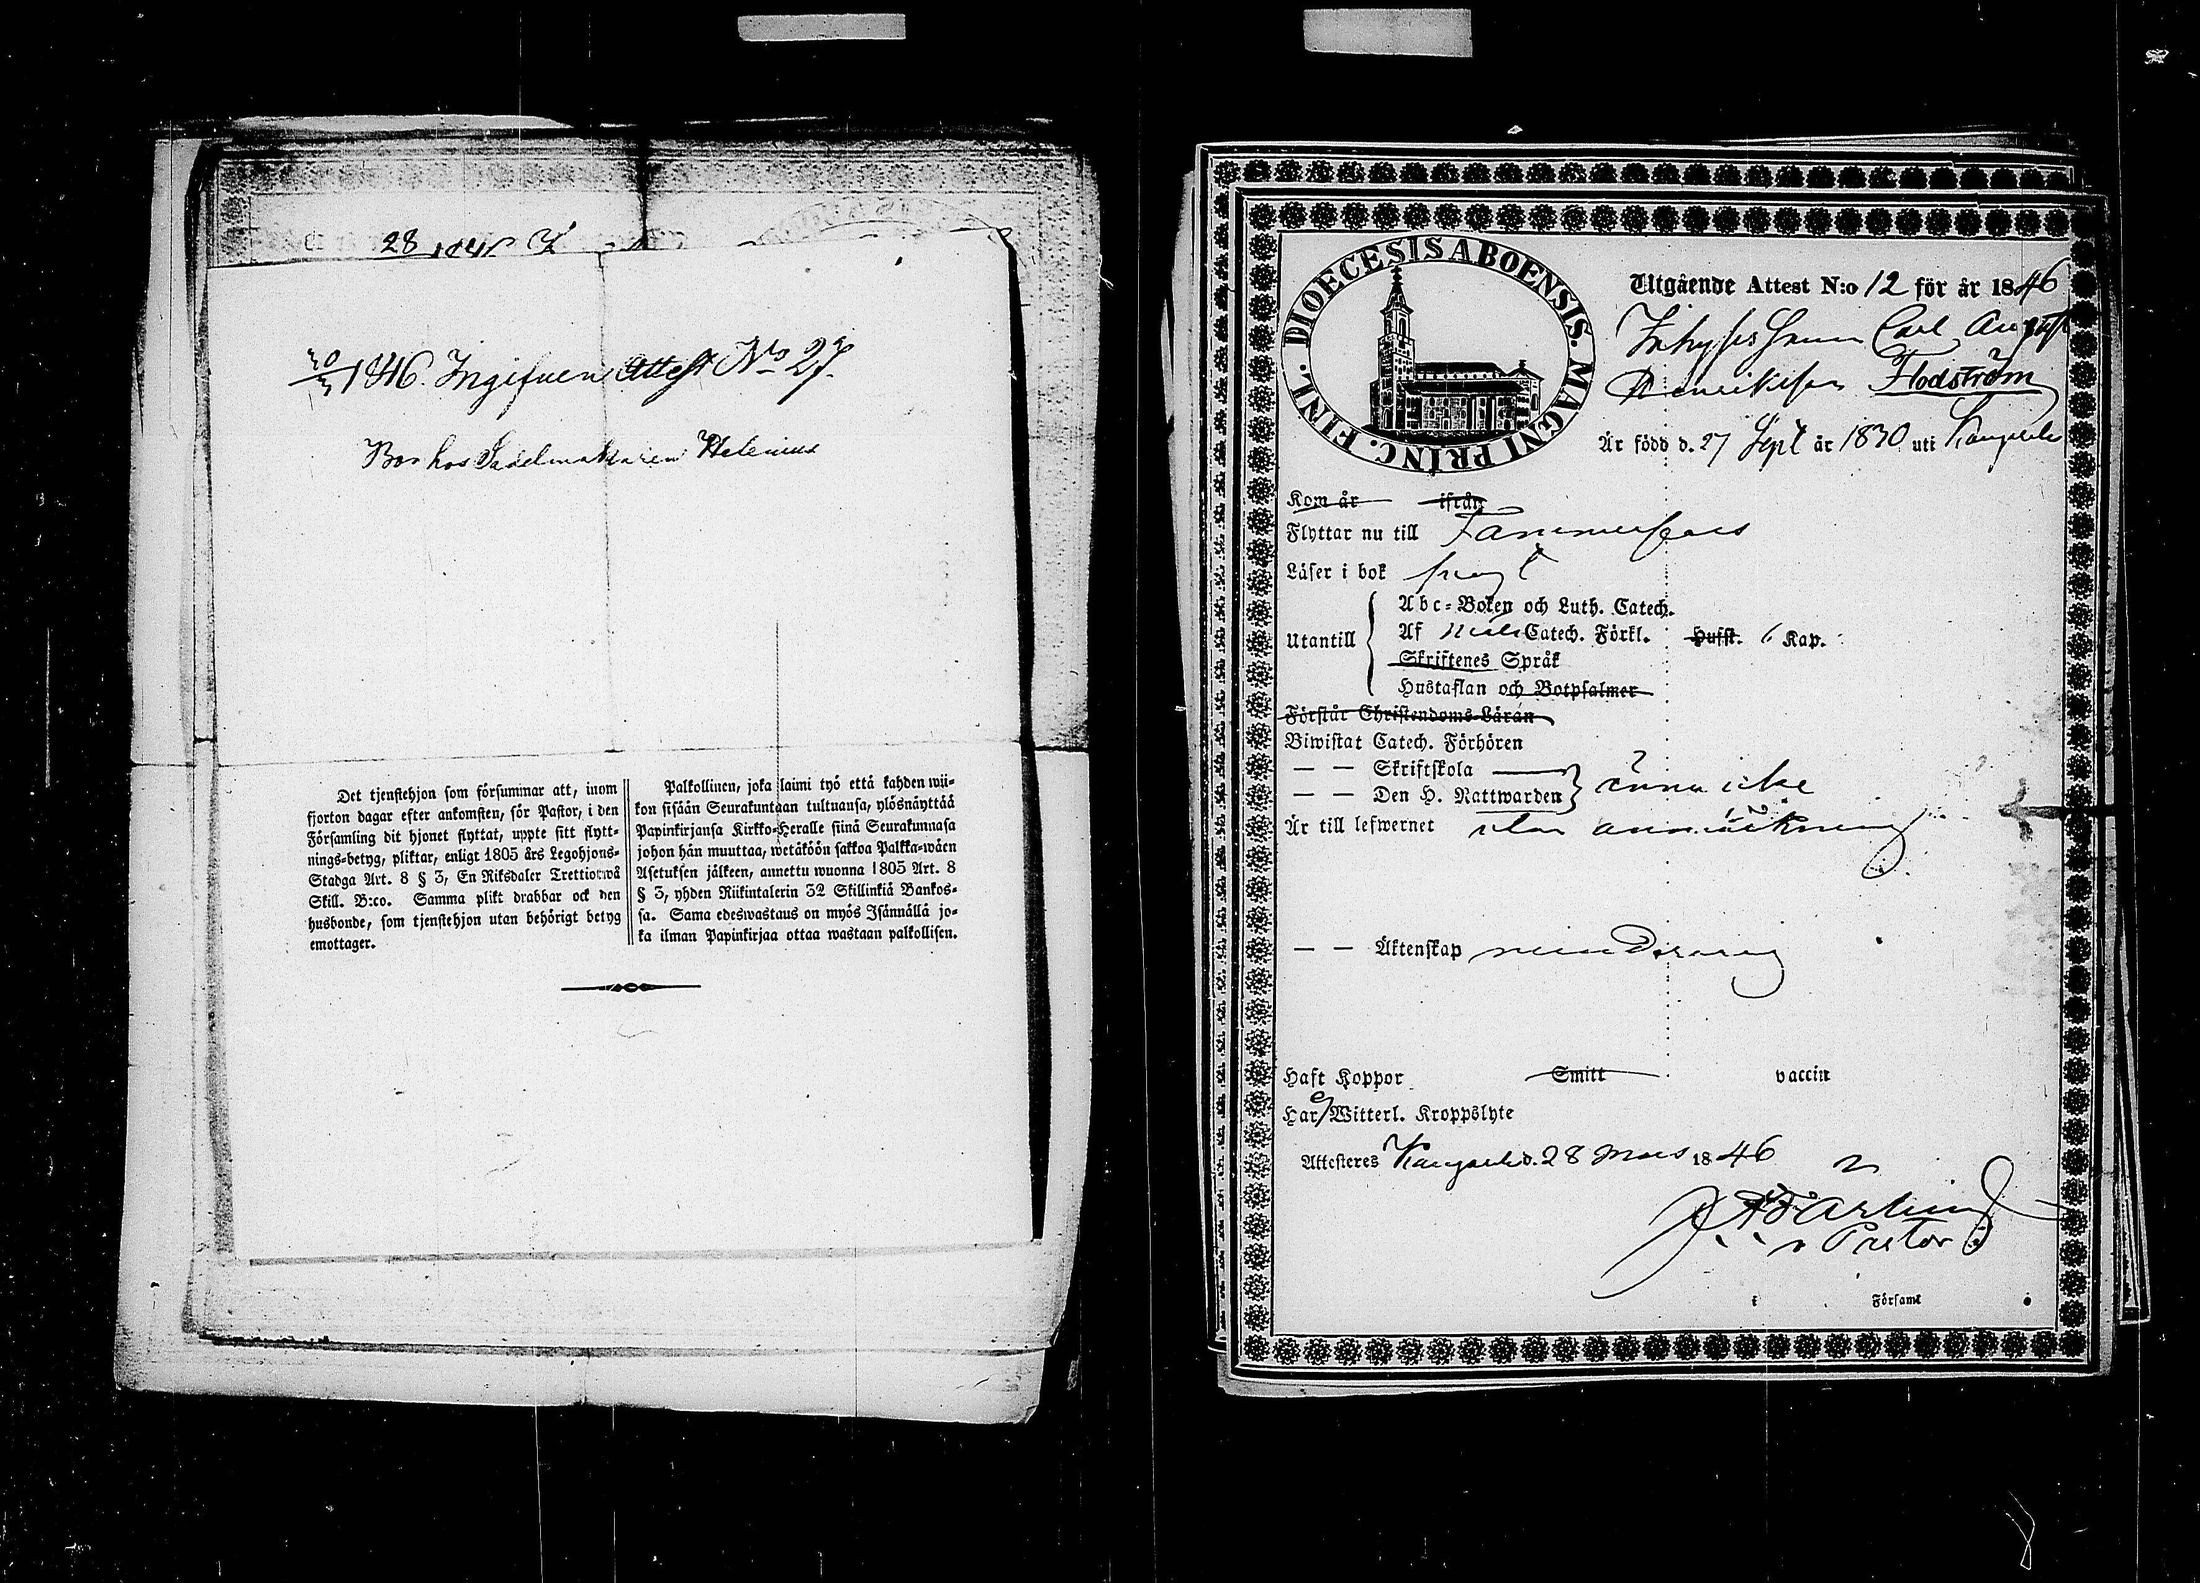 28 1846
30/3 1846. Ingifven Attest No 27.
Bor hos Sadelmakaren Helenius
Det tjenstehjon som försummar att, inom
fjorton dagar efter ankomsten, för Pastor, i den
Församling dit hjonet flyttat, uppte sitt flytt-
nings-betyg, pliktar, enligt 1805 års Legohjons-
Stadga Art. 8 § 3, En Riksdaler Trettiotwå
Skill. B:co. Samma plikt drabbar ock den
husbonde, som tjenstehjon utan behörigt betyg
emottager.
Palkollinen, joka laimi työ että kahden wii-
kon sisään Seurakuntaan tultuansa, ylösnäyttää
Papinkirjansa Kirkko-Heralle siinä Seurakunnasa
johon hän muuttaa, wetäköön sakkoa Palkka-wäen
Asetuksen jälkeen, annettu wuonna 1805 Art. 8
§ 3, yhden Riikintalerin 32 Skillinkiä Bankos-
sa. Sama edeswastaus on myös Isännällä jo-
ka ilman Papinkirjaa ottaa wastaan palkollisen.
DIOECESIS ABOENSIS. MAGNI PRINC. FINL.
Utgående Attest N:o 12 för år 1846
Inhyses Sonen Carl August
Henriksson Flodström
Är född d. 27 Sept år 1830 uti Kangasala
Kom år ifrån
Flyttar nu till Tammerfors
Läser i bok
Utantill
Abc-Boken och Luth. Catech.
Af Catech. Förkl. Hufst. 6 Kap.
Skriftenes Språk
Hustaflan och Botpsalmer
Förstår Christendoms-Läran
Biwistat Catech. Förhören
— — Skriftskola
— — Den H. Nattwarden } ännu icke
Är till lefwernet utan anmärkning
— — Äktenskap minderårig
Haft Koppor Smitt vaccin
Har ej Witterl. Kroppslyte
Attesteres Kangasala d. 28 Mars 1846
v Pastor
i Församl